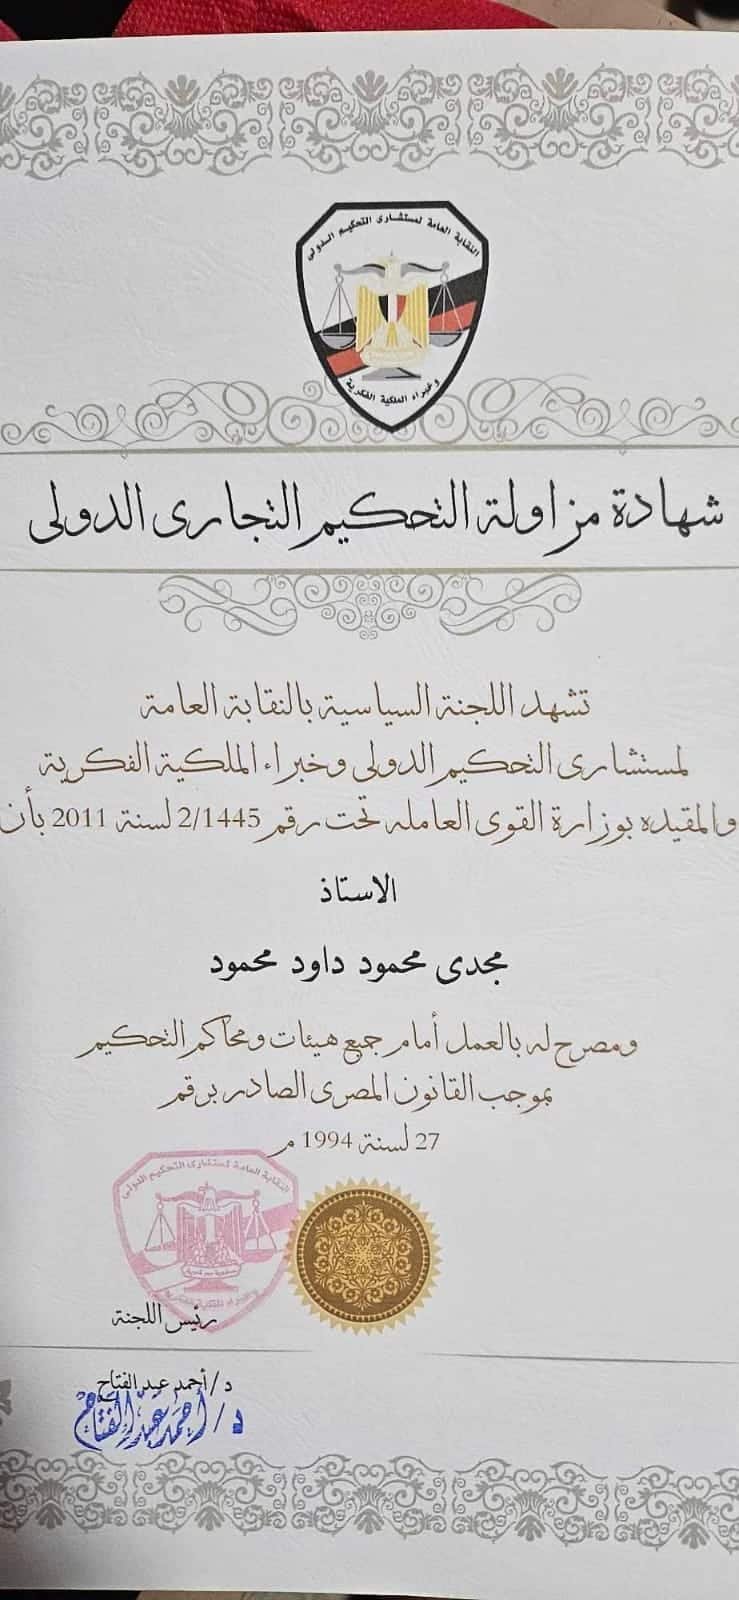 النقابة العامة لمستشارى التحكيم الدولى
وخبراء الملكية الفكرية
شهادة مزاولة التحكيم التجارى الدولى
تشهد اللجنة السياسية بالنقابة العامة
لمستشارى التحكيم الدولى وخبراء الملكية الفكرية
والمقيده بوزارة القوى العامله تحت رقم 2/1445 لسنة 2011 بأن
الاستاذ
مجدى محمود داود محمود
ومصرح له بالعمل أمام جميع هيئات ومحاكم التحكيم
بموجب القانون المصرى الصادر برقم
27 لسنة 1994 م
النقابة العامة لمستشارى التحكيم الدولى
وخبراء الملكية الفكرية
رئيس اللجنة
د/أحمد عبد الفتاح
د/أحمد عبد الفتاح